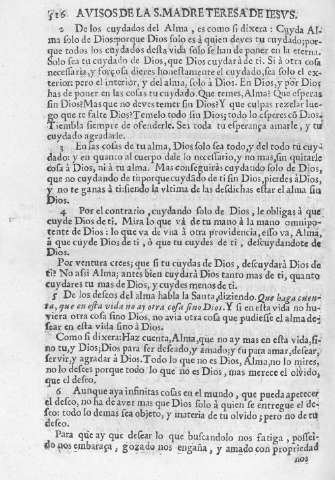 516 AVISOS DE LA S. MADRE TERESA DE IESVS.
2 De los cuydados del Alma, es como si dixera: Cuyda Al-
ma solo de Dios: porque Dios solo es à quien deves tu cuydado; por-
que todos los cuydados desta vida solo se han de poner en la eterna.
Solo sea tu cuydado de Dios, que Dios cuydarà de ti. Si à otra cosa
necessaria, y forçosa dieres honestamente el cuydado, sea solo el ex-
terior: pero el interior, y del alma, solo à Dios. En Dios, y por Dios
has de poner en las cosas tu cuydado. Que temes, Alma? Que esperas
sin Dios? Mas que no deves temer sin Dios? Y que culpas rezelar lue-
go que te falte Dios? Temelo todo sin Dios; todo lo esperes cõ Dios.
Tiembla siempre de ofenderle. Sea toda tu esperança amarle, y tu
cuydado agradarle.
3 En las cosas de tu alma, Dios solo sea todo, y del todo tu cuy-
dado: y en quanto al cuerpo dale lo necessario, y no mas, sin quitarle
cosa à Dios, ni à tu alma. Mas conseguiràs cuydando solo de Dios,
que no cuydando de ti: porque cuydado de ti sin Dios, pierdes à Dios,
y no te ganas à ti: siendo la vltima de las desdichas estar el alma sin
Dios.
4 Por el contrario, cuydando solo de Dios, le obligas à que
cuyde Dios de ti. Mira lo que và de tu mano à la mano omnipo-
tente de Dios: lo que va de vna à otra providencia, esso va, Alma,
à que cuyde Dios de ti, ò que tu cuydes de ti, descuydandote de
Dios.
Por ventura crees; que si tu cuydas de Dios, descuydarà Dios de
ti? No assi Alma; antes bien cuydarà Dios tanto mas de ti, quanto
cuydares tu mas de Dios, y cuydes menos de ti.
5 De los deseos del alma habla la Santa, diziendo. Que haga cuen-
ta, que en esta vida no ay otra cosa sino Dios. Y si en esta vida no hu-
viera otra cosa sino Dios, no avia otra cosa que pudiesse el alma de-
sear en esta vida sino à Dios.
Como si dixera: Haz cuenta, Alma, que no ay mas en esta vida, si-
no tu, y Dios; Dios para ser deseado, y amado; y tu para amar, desear,
servir, y agradar à Dios. Todo lo que no es Dios, Alma, no lo mires,
no lo desees porque todo lo que no es Dios, mas merece el olvido,
que el deseo.
6 Aunque aya infinitas cosas en el mundo, que pueda apetecer
el deseo, no ha de aver mas que Dios solo à quien se entregue el de-
seo: todo lo demas sea objeto, y materia de tu olvido; pero no de tu
deseo.
Para què ay que desear lo que buscandolo nos fatiga, possei-
do nos embaraça, gozado nos engaña, y amado con propriedad
nos